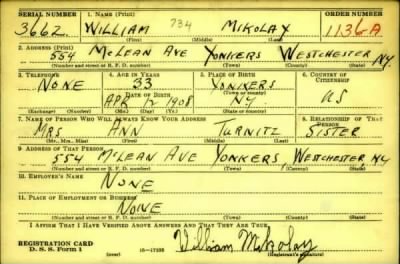 SERIAL NUMBER 1. NAME (Print) ORDER NUMBER
3662 WILLIAM 734 MIKOLAY 1136A
(First) (Middle) (Last)
2. ADDRESS (Print)
554 McLEAN AVE YONKERS WESTCHESTER NY.
(Number and street or R. F. D. number) (Town) (County) (State)
3. TELEPHONE 4. AGE IN YEARS 5. PLACE OF BIRTH 6. COUNTRY OF CITIZENSHIP
NONE 33 YONKERS
DATE OF BIRTH (Town or county)
APR 12 1908 NY. US
(Exchange) (Number) (Mo.) (Day) (Yr.) (State or country)
7. NAME OF PERSON WHO WILL ALWAYS KNOW YOUR ADDRESS 8. RELATIONSHIP OF THAT PERSON
MRS ANN TURNITZ SISTER
(Mr., Mrs., Miss) (First) (Middle) (Last)
9. ADDRESS OF THAT PERSON
554 McLEAN AVE YONKERS, WESTCHESTER, NY
(Number and street or R. F. D. number) (Town) (County) (State)
10. EMPLOYER'S NAME
NONE
11. PLACE OF EMPLOYMENT OR BUSINESS
NONE
(Number and street or R. F. D. number) (Town) (County) (State)
I AFFIRM THAT I HAVE VERIFIED ABOVE ANSWERS AND THAT THEY ARE TRUE.
REGISTRATION CARD
D. S. S. Form 1 William Mikolay
(Registrant's signature)